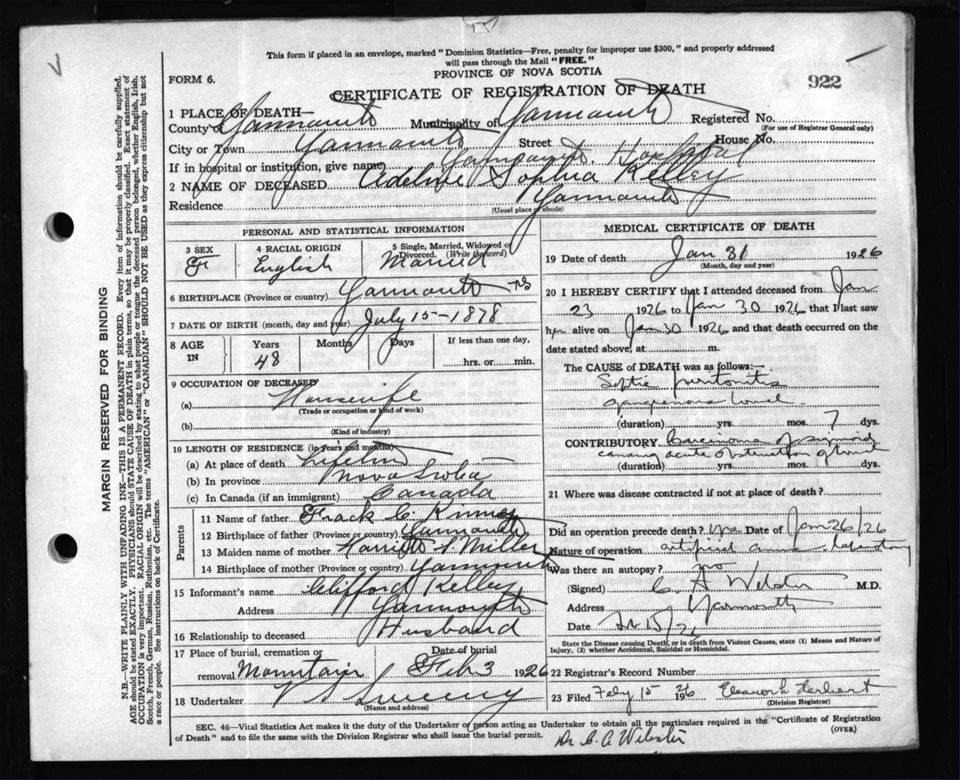 This form if placed in an envelope, marked "Dominion Statistics—Free, penalty for improper use $300," and properly addressed
will pass through the Mail "FREE."
PROVINCE OF NOVA SCOTIA
FORM 6.
922
CERTIFICATE OF REGISTRATION OF DEATH
1 PLACE OF DEATH—
County of Yarmouth Municipality of Yarmouth Registered No.
(For use of Registrar General only)
City or Town Yarmouth Street House No.
If in hospital or institution, give name Yarmouth Hospital
2 NAME OF DECEASED Adeline Sophia Kelley
Residence Yarmouth
(Usual place of abode)
PERSONAL AND STATISTICAL INFORMATION
3 SEX
F
4 RACIAL ORIGIN
English
5 Single, Married, Widowed or
Divorced. (Write the word)
Married
6 BIRTHPLACE (Province or country) Yarmouth NS
7 DATE OF BIRTH (month, day and year) July 15-1878
8 AGE
IN
Years
48
Months
Days
If less than one day,
hrs. or min.
9 OCCUPATION OF DECEASED
(a) Housewife
(Trade or occupation or kind of work)
(b)
(Kind of industry)
10 LENGTH OF RESIDENCE (in years and months)
(a) At place of death Lifetime
(b) In province Nova Scotia
(c) In Canada (if an immigrant) Canada
Parents
11 Name of father C.
12 Birthplace of father (Province or country) Yarmouth
13 Maiden name of mother Miller
14 Birthplace of mother (Province or country) Yarmouth
15 Informant's name Clifford Kelley
Address Yarmouth
16 Relationship to deceased Husband
17 Place of burial, cremation or
removal Mountain
Date of burial
Feb 3 1926
18 Undertaker V S Sweeny
(Name and address)
MEDICAL CERTIFICATE OF DEATH
19 Date of death Jan 31 1926
(Month, day and year)
20 I HEREBY CERTIFY that I attended deceased from Jan
23 1926 to Jan 30 1926 that I last saw
her alive on Jan 30 1926 and that death occurred on the
date stated above, at m.
The CAUSE of DEATH was as follows:
Septic peritonitis
gangrenous bowel
(duration) yrs. mos. 7 dys.
CONTRIBUTORY Carcinoma of sigmoid
causing acute obstruction of bowel
(duration) yrs. mos. dys.
21 Where was disease contracted if not at place of death?
Did an operation precede death? yes Date of Jan 26/26
Nature of operation artificial anus laparotomy
Was there an autopsy? no
(Signed) C. A Webster M.D.
Address Yarmouth
Date
State the Disease causing Death, or in death from Violent Causes, state (1) Means and Nature of
Injury, (2) whether Accidental, Suicidal or Homicidal.
22 Registrar's Record Number
23 Filed Feby 15 1926 Eleanor L Herbert
(Division Registrar)
SEC. 46—Vital Statistics Act makes it the duty of the Undertaker or person acting as Undertaker to obtain all the particulars required in the "Certificate of Registration
of Death" and to file the same with the Division Registrar who shall issue the burial permit.
(OVER)
Dr C. A Webster
MARGIN RESERVED FOR BINDING
N.B.—WRITE PLAINLY WITH UNFADING INK—THIS IS A PERMANENT RECORD. Every item of information should be carefully supplied.
AGE should be stated EXACTLY. PHYSICIANS should STATE CAUSE OF DEATH in plain terms, so that it may be properly classified. Exact statement of
OCCUPATION is very important. RACIAL ORIGIN will be described by stating to what people or tongue the deceased person belonged, whether English, Irish,
Scotch, French, German, Russian, Ruthenian, etc. The terms "AMERICAN" or "CANADIAN" SHOULD NOT BE USED as they express citizenship but not
a race or people. See instructions on back of Certificate.